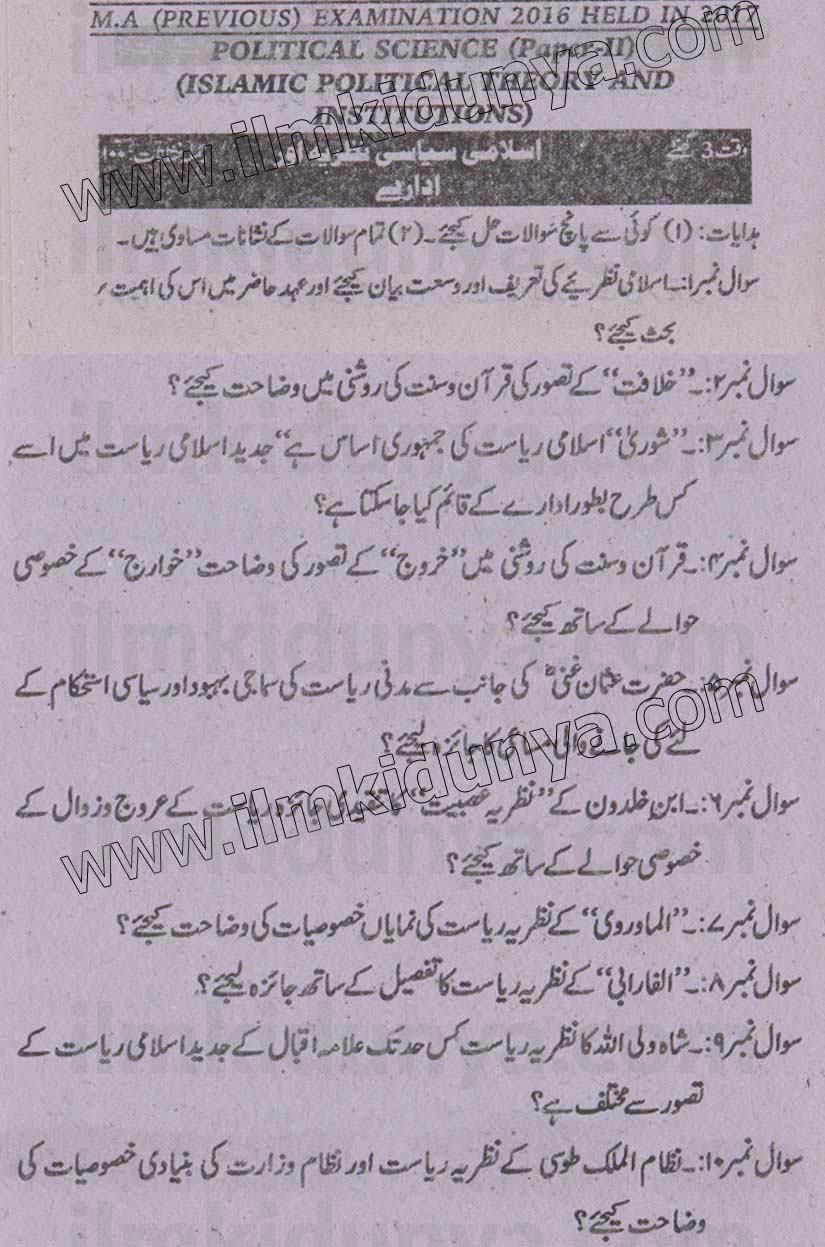 M.A (PREVIOUS) EXAMINATION 2016 HELD IN 2017
POLITICAL SCIENCE (Paper-II)
(ISLAMIC POLITICAL THEORY AND
INSTITUTIONS)
وقت 3 گھنٹے اسلامی سیاسی نظریہ اور ۱۰۰
ادارے
ہدایات: (۱) کوئی سے پانچ سوالات حل کیجئے۔ (۲) تمام سوالات کے نشانات مساوی ہیں۔
سوال نمبر۱:۔ اسلامی نظریئے کی تعریف اور وسعت بیان کیجئے اور عہد حاضر میں اس کی اہمیت
بحث کیجئے؟
سوال نمبر۲:۔ ”خلافت“ کے تصور کی قرآن و سنت کی روشنی میں وضاحت کیجئے؟
سوال نمبر۳:۔ ”شوریٰ“ اسلامی ریاست کی جمہوری اساس ہے“ جدید اسلامی ریاست میں اسے
کس طرح بطور ادارے کے قائم کیا جاسکتا ہے؟
سوال نمبر۴:۔ قرآن و سنت کی روشنی میں ”خروج“ کے تصور کی وضاحت ”خوارج“ کے خصوصی
حوالے کے ساتھ کیجئے؟
سوال نمبر۵:۔ حضرت عثمان غنیؓ کی جانب سے مدنی ریاست کی سماجی بہبود اور سیاسی استحکام کے
لئے کی جانے والی مساعی کا جائزہ لیجئے؟
سوال نمبر۶:۔ ابن خلدون کے ”نظریہ عصبیت“ کا تنقیدی جائزہ ریاست کے عروج و زوال کے
خصوصی حوالے کے ساتھ کیجئے؟
سوال نمبر۷:۔ ”الماوردی“ کے نظریہ ریاست کی نمایاں خصوصیات کی وضاحت کیجئے؟
سوال نمبر۸:۔ ”الفارابی“ کے نظریہ ریاست کا تفصیل کے ساتھ جائزہ لیجئے؟
سوال نمبر۹:۔ شاہ ولی اللہ کا نظریہ ریاست کس حد تک علامہ اقبال کے جدید اسلامی ریاست کے
تصور سے مختلف ہے؟
سوال نمبر۱۰:۔ نظام الملک طوسی کے نظریہ ریاست اور نظام وزارت کی بنیادی خصوصیات کی
وضاحت کیجئے؟
www.ilmkidunya.com
www.ilmkidunya.com